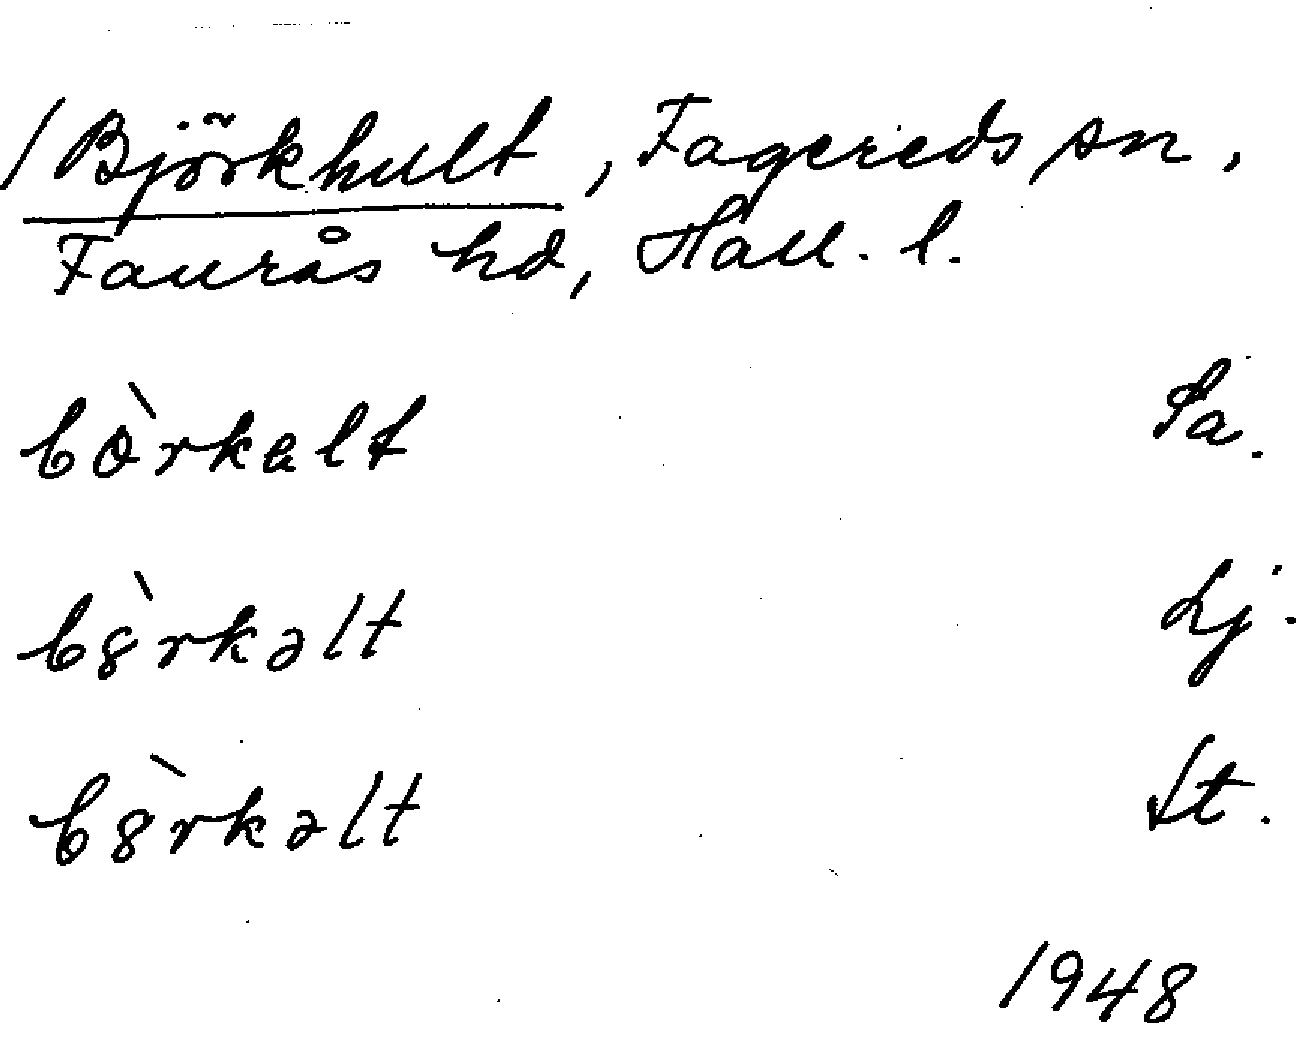 /Björkhult, Fagereds sn,
Faurås hd, Hall. l.
bòrkalt Sa.
b8̀rkəlt Lj.
b8̀rkəlt St.
1948